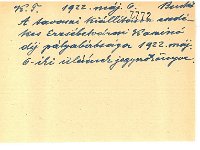 K. T. 1922. máj. 6. Buda
A tavaszi kiállításon esedé-
kes Erzsébetvárosi Kaszinó
díj pályabírósága 1922. máj.
6-iki ülésének jegyzőkönyve.